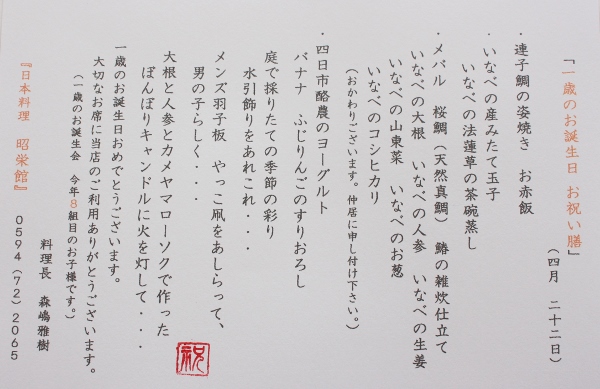 「一歳のお誕生日 お祝い膳」
(四月 二十二日)
・連子鯛の姿焼き お赤飯
・いなべの産みたて玉子
いなべの法蓮草の茶碗蒸し
・メバル 桜鯛(天然真鯛) 鰆の雑炊仕立て
いなべの大根 いなべの人参 いなべの生姜
いなべの山東菜 いなべのお葱
いなべのコシヒカリ
(おかわりございます。仲居に申し付け下さい。)
・四日市酪農のヨーグルト
バナナ ふじりんごのすりおろし
庭で採りたての季節の彩り
水引飾りをあれこれ・・・
メンズ羽子板 やっこ凧をあしらって、
男の子らしく・・・
大根と人参とカメヤマローソクで作った
ぼんぼりキャンドルに火を灯して・・・
祝
一歳のお誕生日おめでとうございます。
大切なお席に当店のご利用ありがとうございます。
(一歳のお誕生会 今年8組目のお子様です。)
料理長 森嶋雅樹
『日本料理 昭栄館』 0594(72)2065